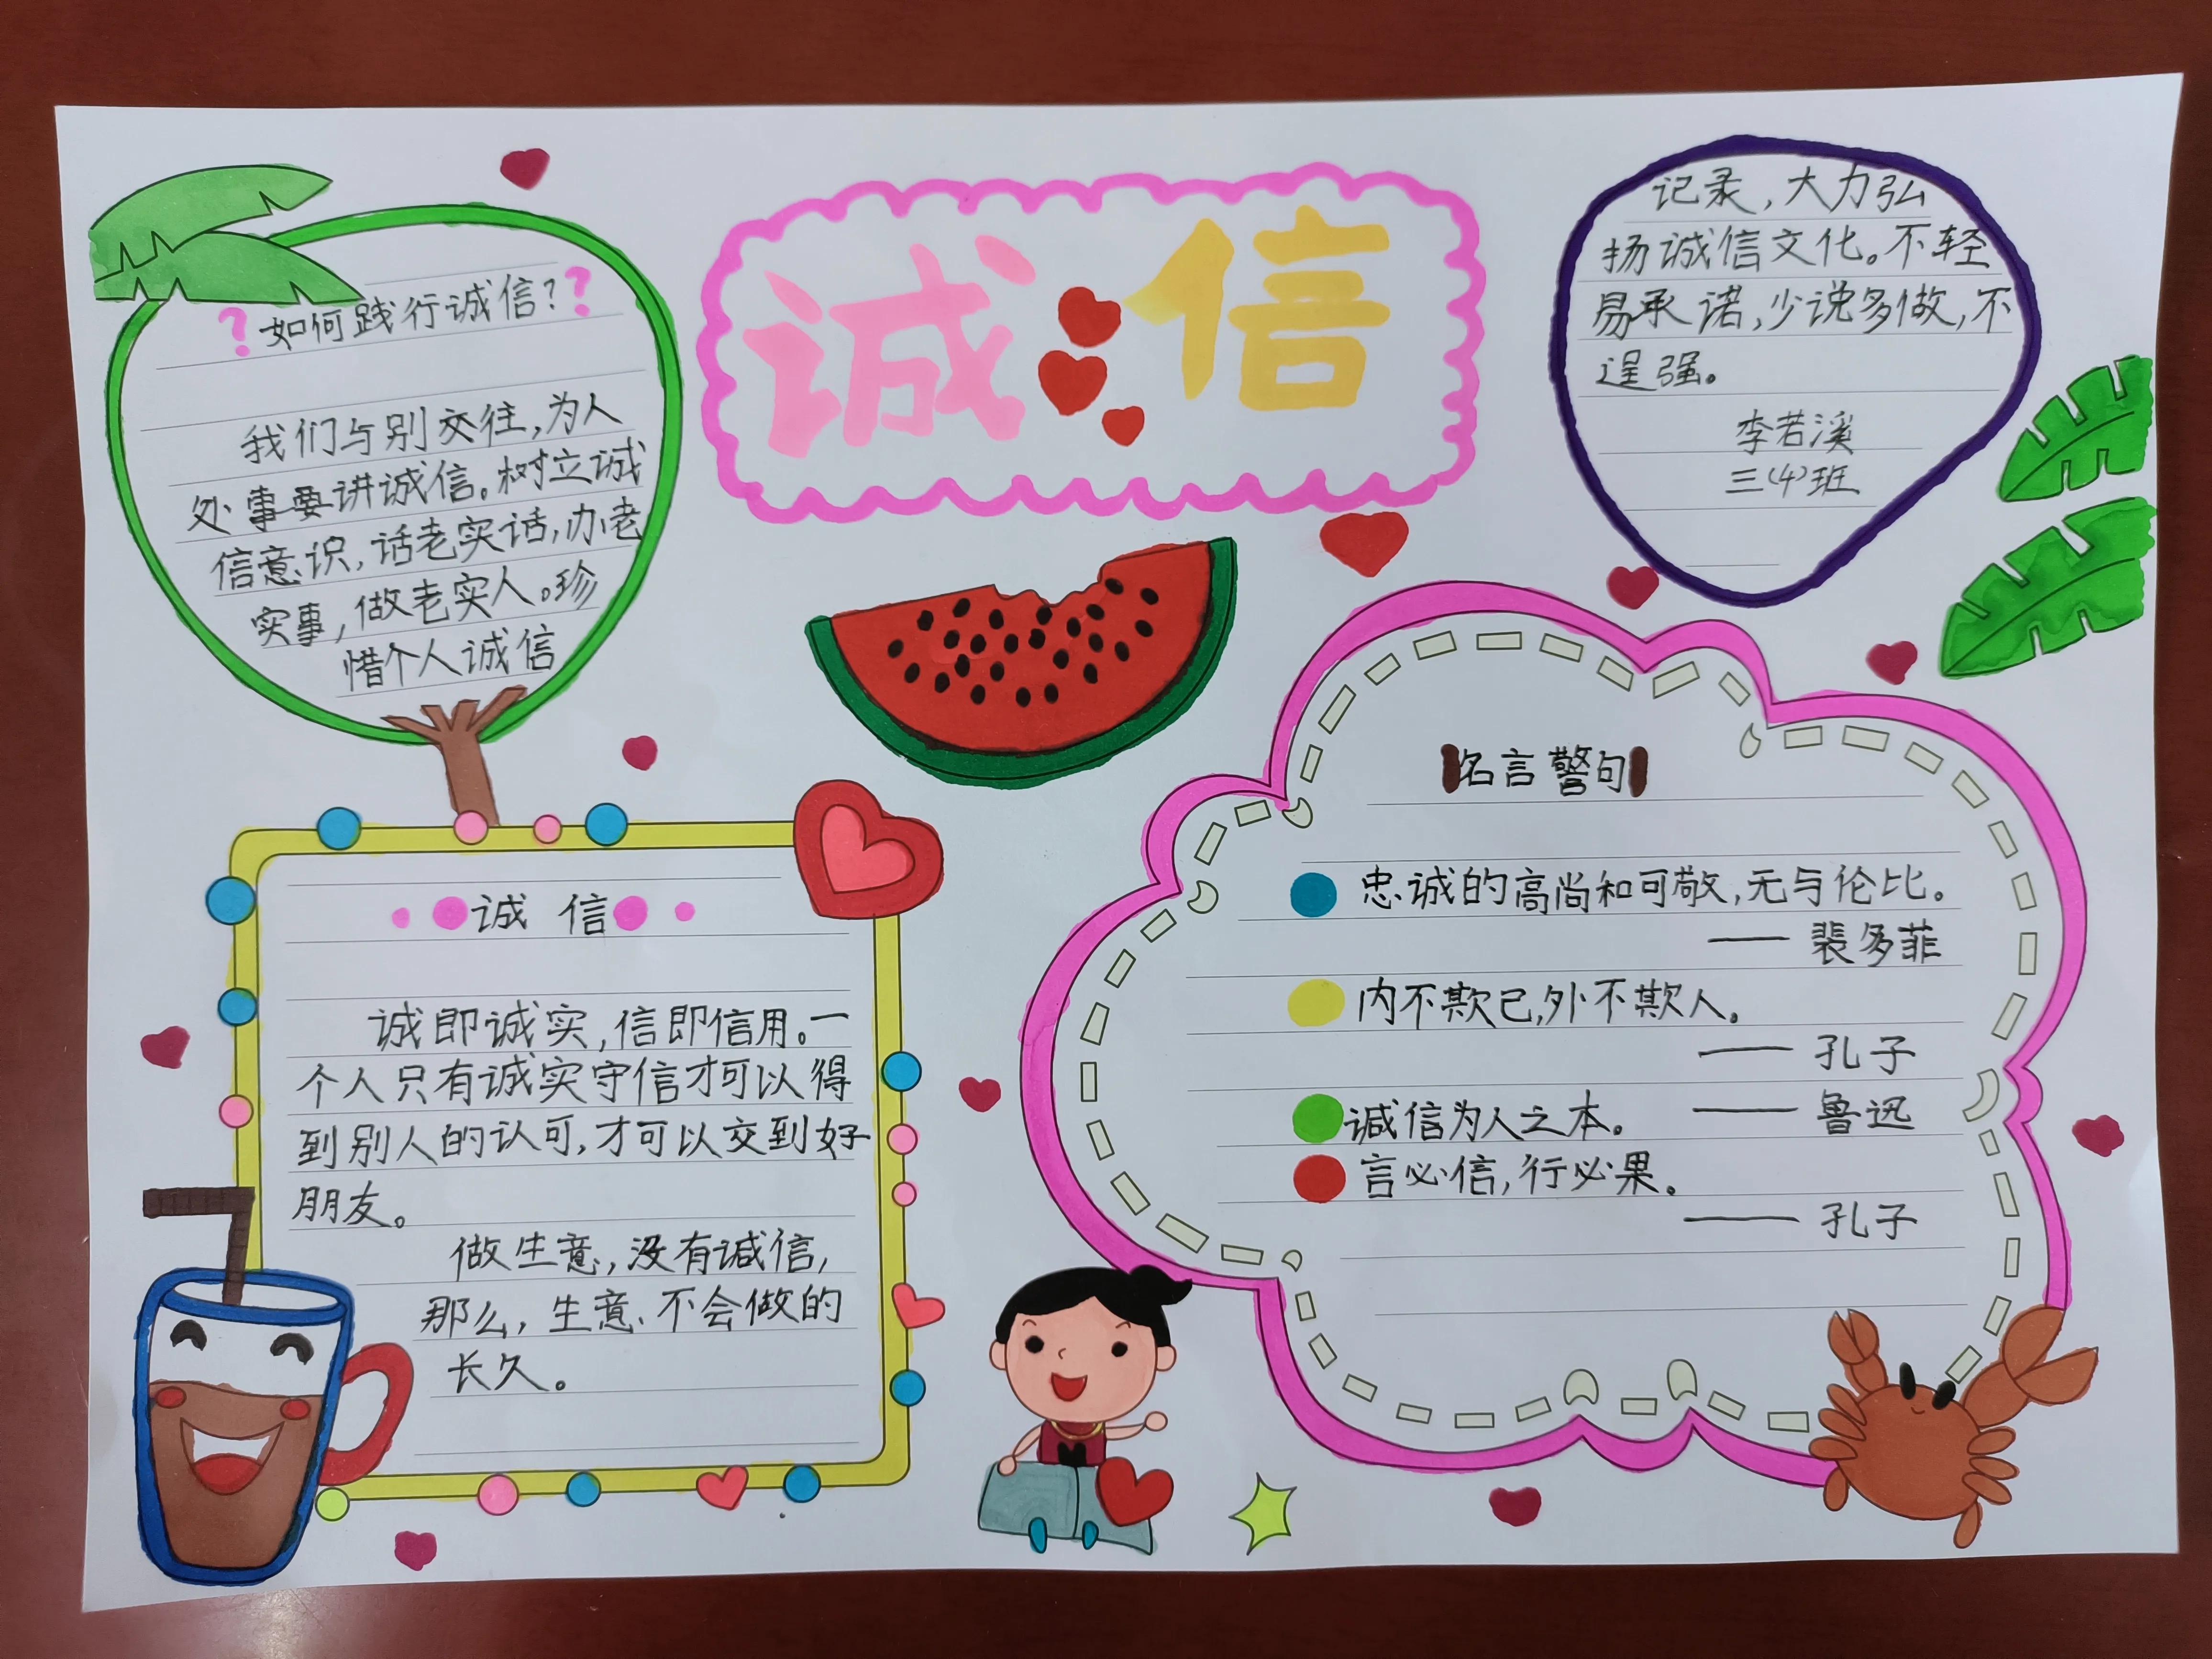 诚信
？如何践行诚信？？
我们与别交往，为人
处事要讲诚信。树立诚
信意识，话老实话，办老
实事，做老实人。珍
惜个人诚信
记录，大力弘
扬诚信文化。不轻
易承诺，少说多做，不
逞强。
李若溪
三（4）班
诚 信
诚即诚实，信即信用。一
个人只有诚实守信才可以得
到别人的认可，才可以交到好
朋友。
做生意，没有诚信，
那么，生意不会做的
长久。
名言警句
忠诚的高尚和可敬，无与伦比。
—— 裴多菲
内不欺己，外不欺人。
—— 孔子
诚信为人之本。 —— 鲁迅
言必信，行必果。
—— 孔子